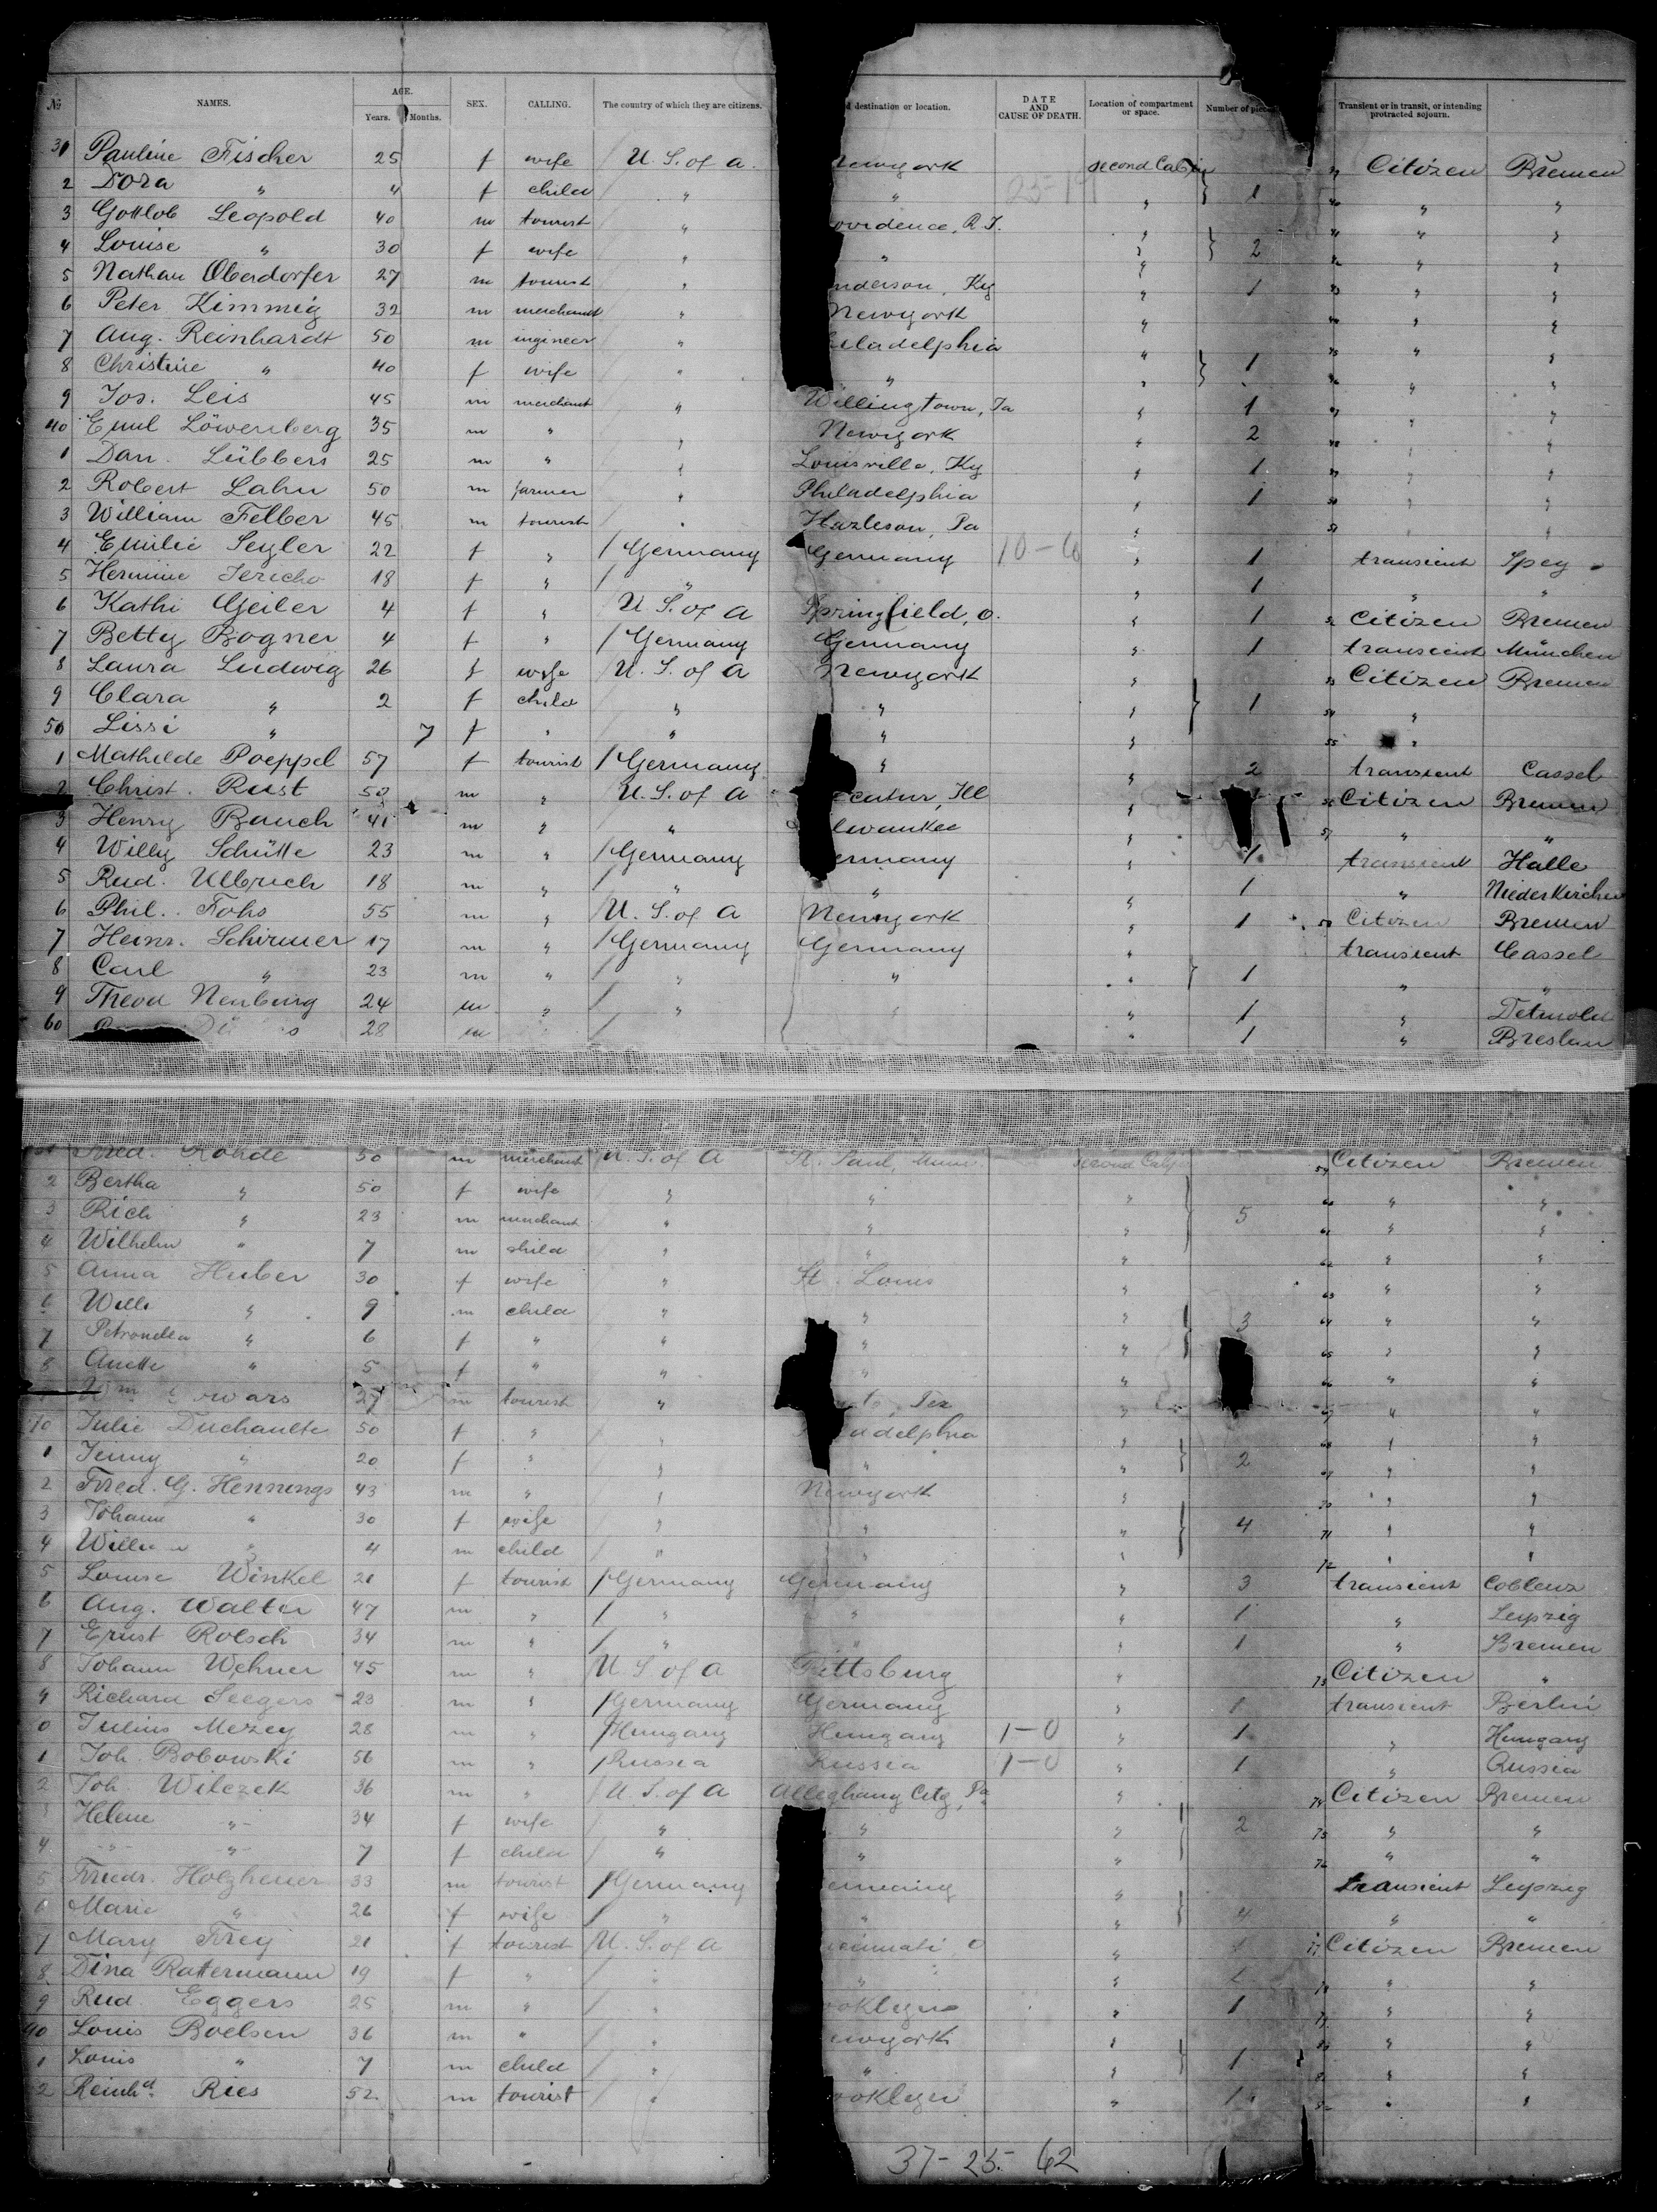 № NAMES. AGE. Years. Months. SEX. CALLING. The country of which they are citizens. d destination or location. DATE AND CAUSE OF DEATH. Location of compartment or space. Number of piec Transient or in transit, or intending protracted sojourn.
31 Pauline Fischer 25 f wife U. S. of a. Newyork second Cabin Citizen Bremen
2 Dora " 4 f child " " 1 " "
3 Gottlob Leopold 40 m tourist " ovidence, R.I. " " "
4 Louise " 30 f wife " " " 2 " "
5 Nathan Oberdorfer 27 m tourist " nderson, Ky " 1 " "
6 Peter Kimmig 32 m merchandt " Newyork " " "
7 Aug. Reinhardt 50 m ingineer " iladelphia " " "
8 Christine " 40 f wife " " " 1 " "
9 Jos. Leis 45 m merchant " Willingtown, " 1 " "
40 Emil Löwenberg 35 m " " Newyork " 2 " "
1 Dan. Lübbers 25 m " " Louisville, Ky " 1 " "
2 Robert Lahn 50 m farmer " Philadelphia " 1 " "
3 William Felber 45 m tourist " Hazleson, Pa " " "
4 Emilie Seyler 22 f " Germany Germany 10-0 " 1 transient Spey
5 Hermine Jericho 18 f " " " 1 " "
6 Kathi Geiler 4 f " U. S. of a Springfield, O. " 1 Citizen Bremen
7 Betty Bogner 4 f " Germany Germany " 1 transient München
8 Laura Ludwig 26 f wife U. S. of a Newyork " Citizen Bremen
9 Clara " 2 f child " " " 1 "
50 Lissi " 7 f " " " " 55 "
1 Mathilde Poeppel 57 f tourist Germany " " 2 transient Cassel
2 Christ. Rust 50 m " U. S. of a catur, Ill " Citizen Bremen
3 Henry Bauch 41 m " " lwaukee " 57 " "
4 Willy Schütte 23 m " Germany ermany " 1 transient Halle
5 Rud. Ulbrich 18 m " " " " 1 " Niederkirchen
6 Phil. Fohs 55 m " U. S. of a Newyork " 1 Citizen Bremen
7 Heinr. Schirmer 17 m " Germany Germany " transient Cassel
8 Carl " 23 m " " " " 1 " "
9 Theod Neuburg 24 m " " " " 1 " Detmold
60 28 m " 1 " Breslau
Fred. Rohde 50 m merchant U. S. of a St. Paul, Minn second Cab 59 Citizen Bremen
2 Bertha " 50 f wife " " " 60 " "
3 Rich " 23 m merchant " " " 5 61 " "
4 Wilhelm " 7 m child " " " 62 " "
5 Anna Huber 30 f wife " St. Louis " 63 " "
6 Willi " 9 m child " " " 3 64 " "
7 Petronella " 6 f " " " " 65 " "
8 Anette " 5 f " " " " 66 " "
27 m tourist " Tex " 67 " "
70 Julie Duchaulte 50 f " " adelphia " 68 " "
1 Jenny " 20 f " " " " 2 69 " "
2 Fred. G. Hennings 43 m " " Newyork " 70 " "
3 Johann " 30 f wife " " " 4 71 " "
4 Willi " 4 m child " " " 72 " "
5 Louise Winkel 21 f tourist Germany Germany " 3 transient Coblenz
6 Aug. Walter 47 m " " " " 1 " Leipzig
7 Ernst Rolsch 34 m " " " " 1 " Bremen
8 Johann Wehner 45 m " U. S. of a Pittsburg " 73 Citizen "
9 Richard Seegers 23 m " Germany Germany " 1 transient Berlin
0 Julius Mezey 28 m " Hungary Hungary 1-0 " 1 " Hungary
1 Joh. Bobowski 56 m " Russia Russia 1-0 " 1 " Russia
2 Joh. Wilczek 36 m " U. S. of a Alleghany City, Pa " 74 Citizen Bremen
3 Helene " 34 f wife " " " 2 75 " "
4 " " 7 f child " " " 76 " "
5 Friedr. Holzheuer 33 m tourist Germany ermany " transient Leipzig
6 Marie " 26 f wife " " " 4 " "
7 Mary Frey 21 f tourist U. S. of a cinnati, O " 1 77 Citizen Bremen
8 Dina Rattermann 19 f " " " " 78 " "
9 Rud. Eggers 25 m " " ooklyn " 1 79 " "
90 Louis Boelsen 36 m " " ewyork " " "
1 Louis " 7 m child " " " 1 " "
2 Reinhd. Ries 52 m tourist " ooklyn " 1 " "
37-25-62